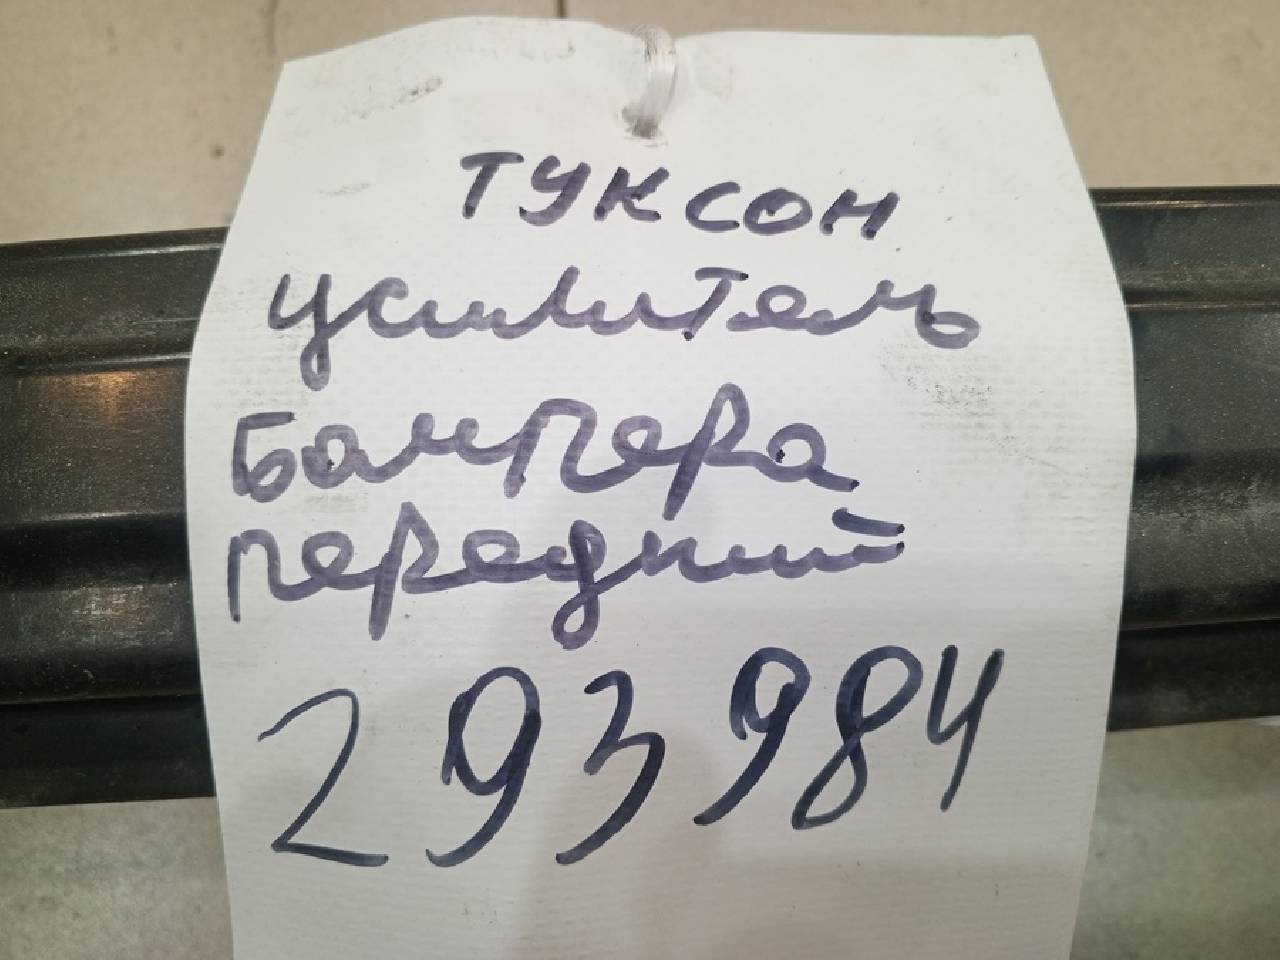 ТУКСОН
Усилитель
Бампера
передний
293984